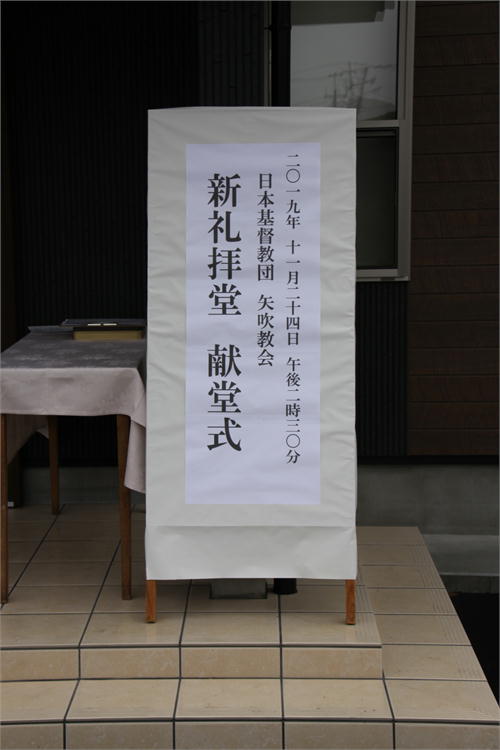 二〇一九年 十一月二十四日 午後二時三〇分
日本基督教団 矢吹教会
新礼拝堂 献堂式